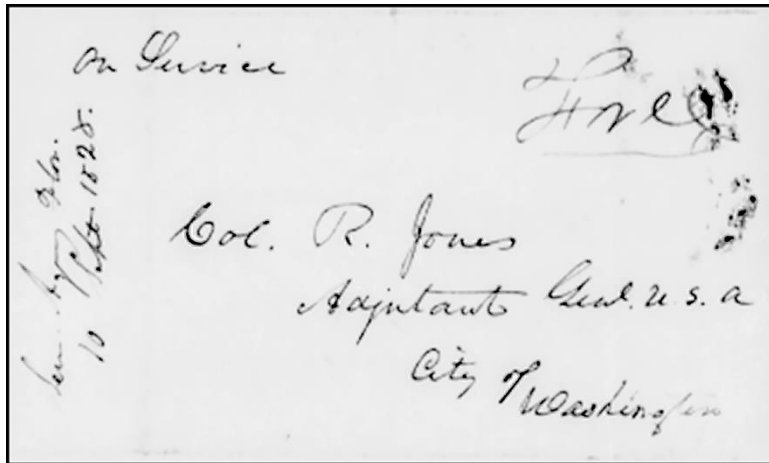 On Service
Free
Flor.
10 Sept. 1828.
Col. R. Jones
Adjutant Genl. U. S. A
City of Washington